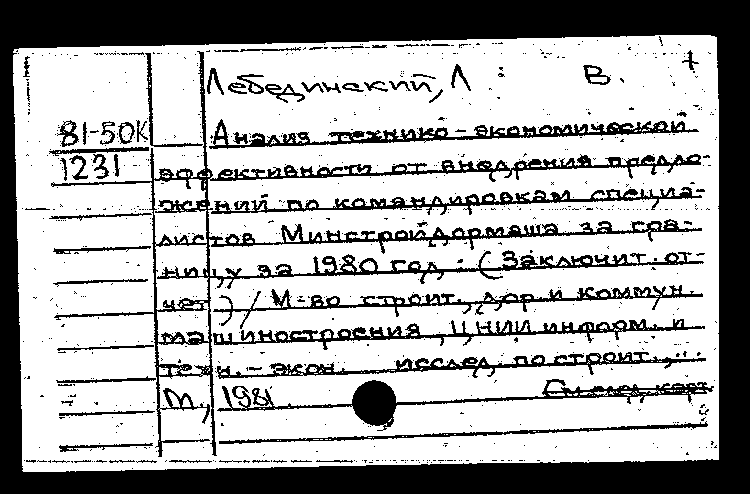 Лебединский, Л. В.
81-50К
1231
Анализ технико-экономической
эффективности от внедрения предло-
жений по командировкам специа-
листов Минстройдормаша за гра-
ницу за 1980 год. : (Заключит. от-
чет) / М-во строит., дор. и коммун.
машиностроения, ЦНИИ информ. и
техн.-экон. исслед. по строит.,..
М., 1981
См. след. карт.